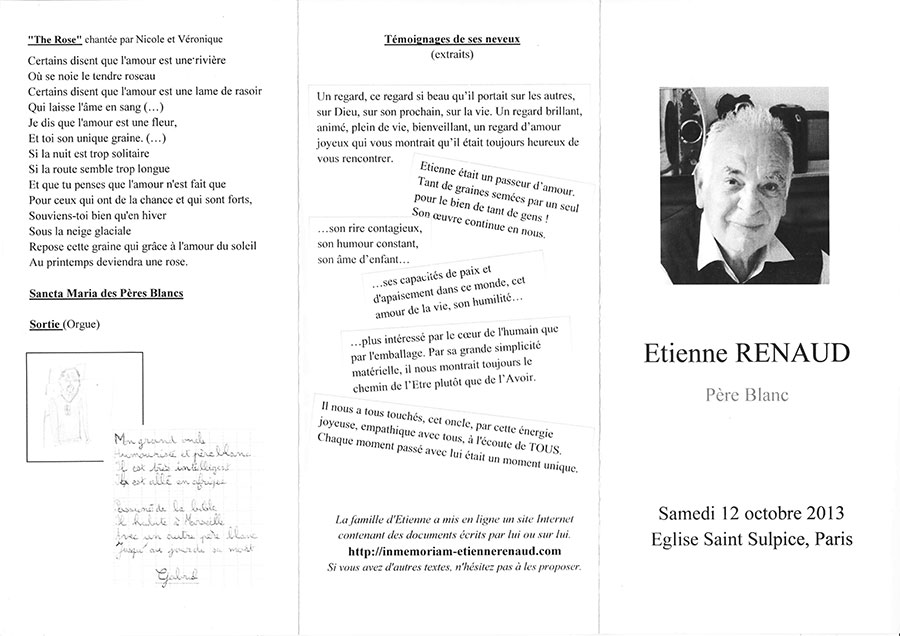 "The Rose" chantée par Nicole et Véronique
Certains disent que l'amour est une rivière
Où se noie le tendre roseau
Certains disent que l'amour est une lame de rasoir
Qui laisse l'âme en sang (…)
Je dis que l'amour est une fleur,
Et toi son unique graine. (…)
Si la nuit est trop solitaire
Si la route semble trop longue
Et que tu penses que l'amour n'est fait que
Pour ceux qui ont de la chance et qui sont forts,
Souviens-toi bien qu'en hiver
Sous la neige glaciale
Repose cette graine qui grâce à l'amour du soleil
Au printemps deviendra une rose.
Sancta Maria des Pères Blancs
Sortie (Orgue)
Mon grand oncle
Humouriste et père blanc
Il est très intelligent
Il est allé en afrique
Passioné de la bible
Il habite à Marseille
Avec un autre père blanc
Jusqu'au jour de sa mort
Gabriel
Témoignages de ses neveux
(extraits)
Un regard, ce regard si beau qu'il portait sur les autres,
sur Dieu, sur son prochain, sur la vie. Un regard brillant,
animé, plein de vie, bienveillant, un regard d'amour
joyeux qui vous montrait qu'il était toujours heureux de
vous rencontrer.
Etienne était un passeur d'amour.
Tant de graines semées par un seul
pour le bien de tant de gens !
Son œuvre continue en nous.
…son rire contagieux,
son humour constant,
son âme d'enfant…
…ses capacités de paix et
d'apaisement dans ce monde, cet
amour de la vie, son humilité…
…plus intéressé par le cœur de l'humain que
par l'emballage. Par sa grande simplicité
matérielle, il nous montrait toujours le
chemin de l'Etre plutôt que de l'Avoir.
Il nous a tous touchés, cet oncle, par cette énergie
joyeuse, empathique avec tous, à l'écoute de TOUS.
Chaque moment passé avec lui était un moment unique.
La famille d'Etienne a mis en ligne un site Internet
contenant des documents écrits par lui ou sur lui.
http://inmemoriam-etiennerenaud.com
Si vous avez d'autres textes, n'hésitez pas à les proposer.
Etienne RENAUD
Père Blanc
Samedi 12 octobre 2013
Eglise Saint Sulpice, Paris